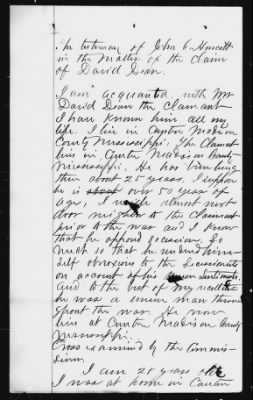 The testimony of John C
in the Matter of the claim
of David Dean.
I am acquanted with Mr
David Dean the claimant
I have known him all my
life. I live in Canton Madison
County Mississippi. The Claimant
lives in Canton Madison County
Mississippi, He has been living
there about 25 years. I suppose
he is about over 50 years of
age, I made almost next
door neighbor to the claimant
prior to the war and I know
that he opposed secession. So
much so that he made him-
self obnoxious to the Secessionists
on account of his union sentiments.
And to the best of my recollection
he was a union man through
ghout the war. He now
lives at Canton Madison County
Mississippi.
Cross examined by the Commis-
sioner.
I am 28 years old
I was at home in Canton